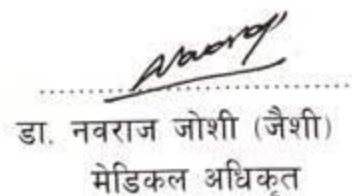 डा. नवराज जोशी (जैशी)
मेडिकल अधिकृत